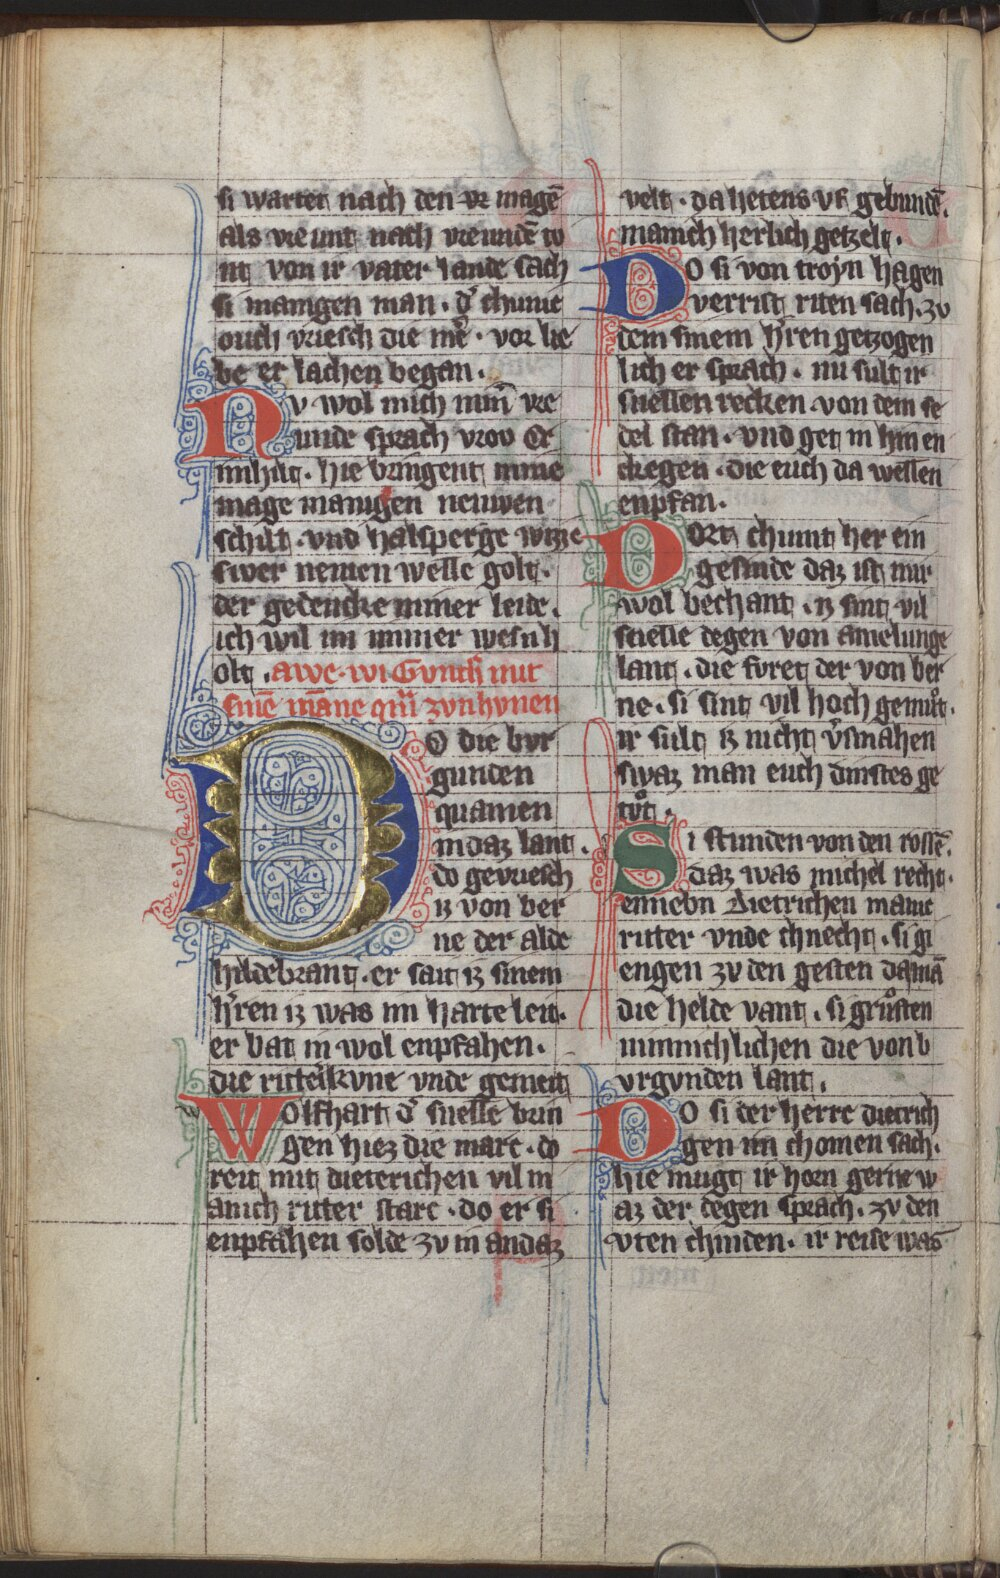 si wartet nach den vͤr magē
als vreunt nach vreundē to
nt, von ir vater lande sach
si manigen man. d͛ chunic
ouch vriesch die me͛. vor lie
be er lachen began.
Nv wol mich min͛ vre
unde sprach vrov Cr
imhilt. hie bringent mine
mage manigen neuwen
schilt. vnd halsperge wizze
swer nemen welle golt.
der gedencke miner leide.
ich wil im immer wesn h
olt. awe. wi Gvnth͛ mit
sinē māne qm͛ zvn hvnen
DO die bvr
gunden
quamen
in daz lant.
do gevriesch
iz von ber
ne der alde
hildebrant. er sait iz sinem
h͛ren iz was im harte leit.
er bat in wol enpfahen.
die rittʼ kvne vnde gemeit
Wolfhart d͛ snelle brin
gen hiez die marc. do
reit mit dieterichen vil m
anich ritter starc. do er si
enpfahen solde zv in an daz
velt. da hetens vf gebundē.
manich herlich getzelt.
DO si von troyn hagen
verrist riten sach. zv
dem sinem h͛ren getzogen
lich er sprach. nu sult ir
snellen recken. von dem se
del stan. vnd get in hin en
kegen. die euch da wellen
enpfan.
Dort chumt her ein
gesinde daz ist mir
wol bechant. iz sint vil
snelle degen von amelunge
lant. die fvret der von ber
ne. si sint vil hoch gemuͦt.
ir sult iz nicht v͛smahen
swaz man euch dinstes ge
tvͦt.
Si stunden von den rossē.
daz was michel recht.
ennebn Dietrichen manic
ritter vnde chnecht. si gi
engen zv den gesten da mā
die helde vant. si gruͦsten
minnichlichen die von b
vrgvnden lant.
DO si der herre dietrich
gen im chomen sach.
hie mugt ir horn gerne w
az der degen sprach. zv den
vten chinden. ir reise was